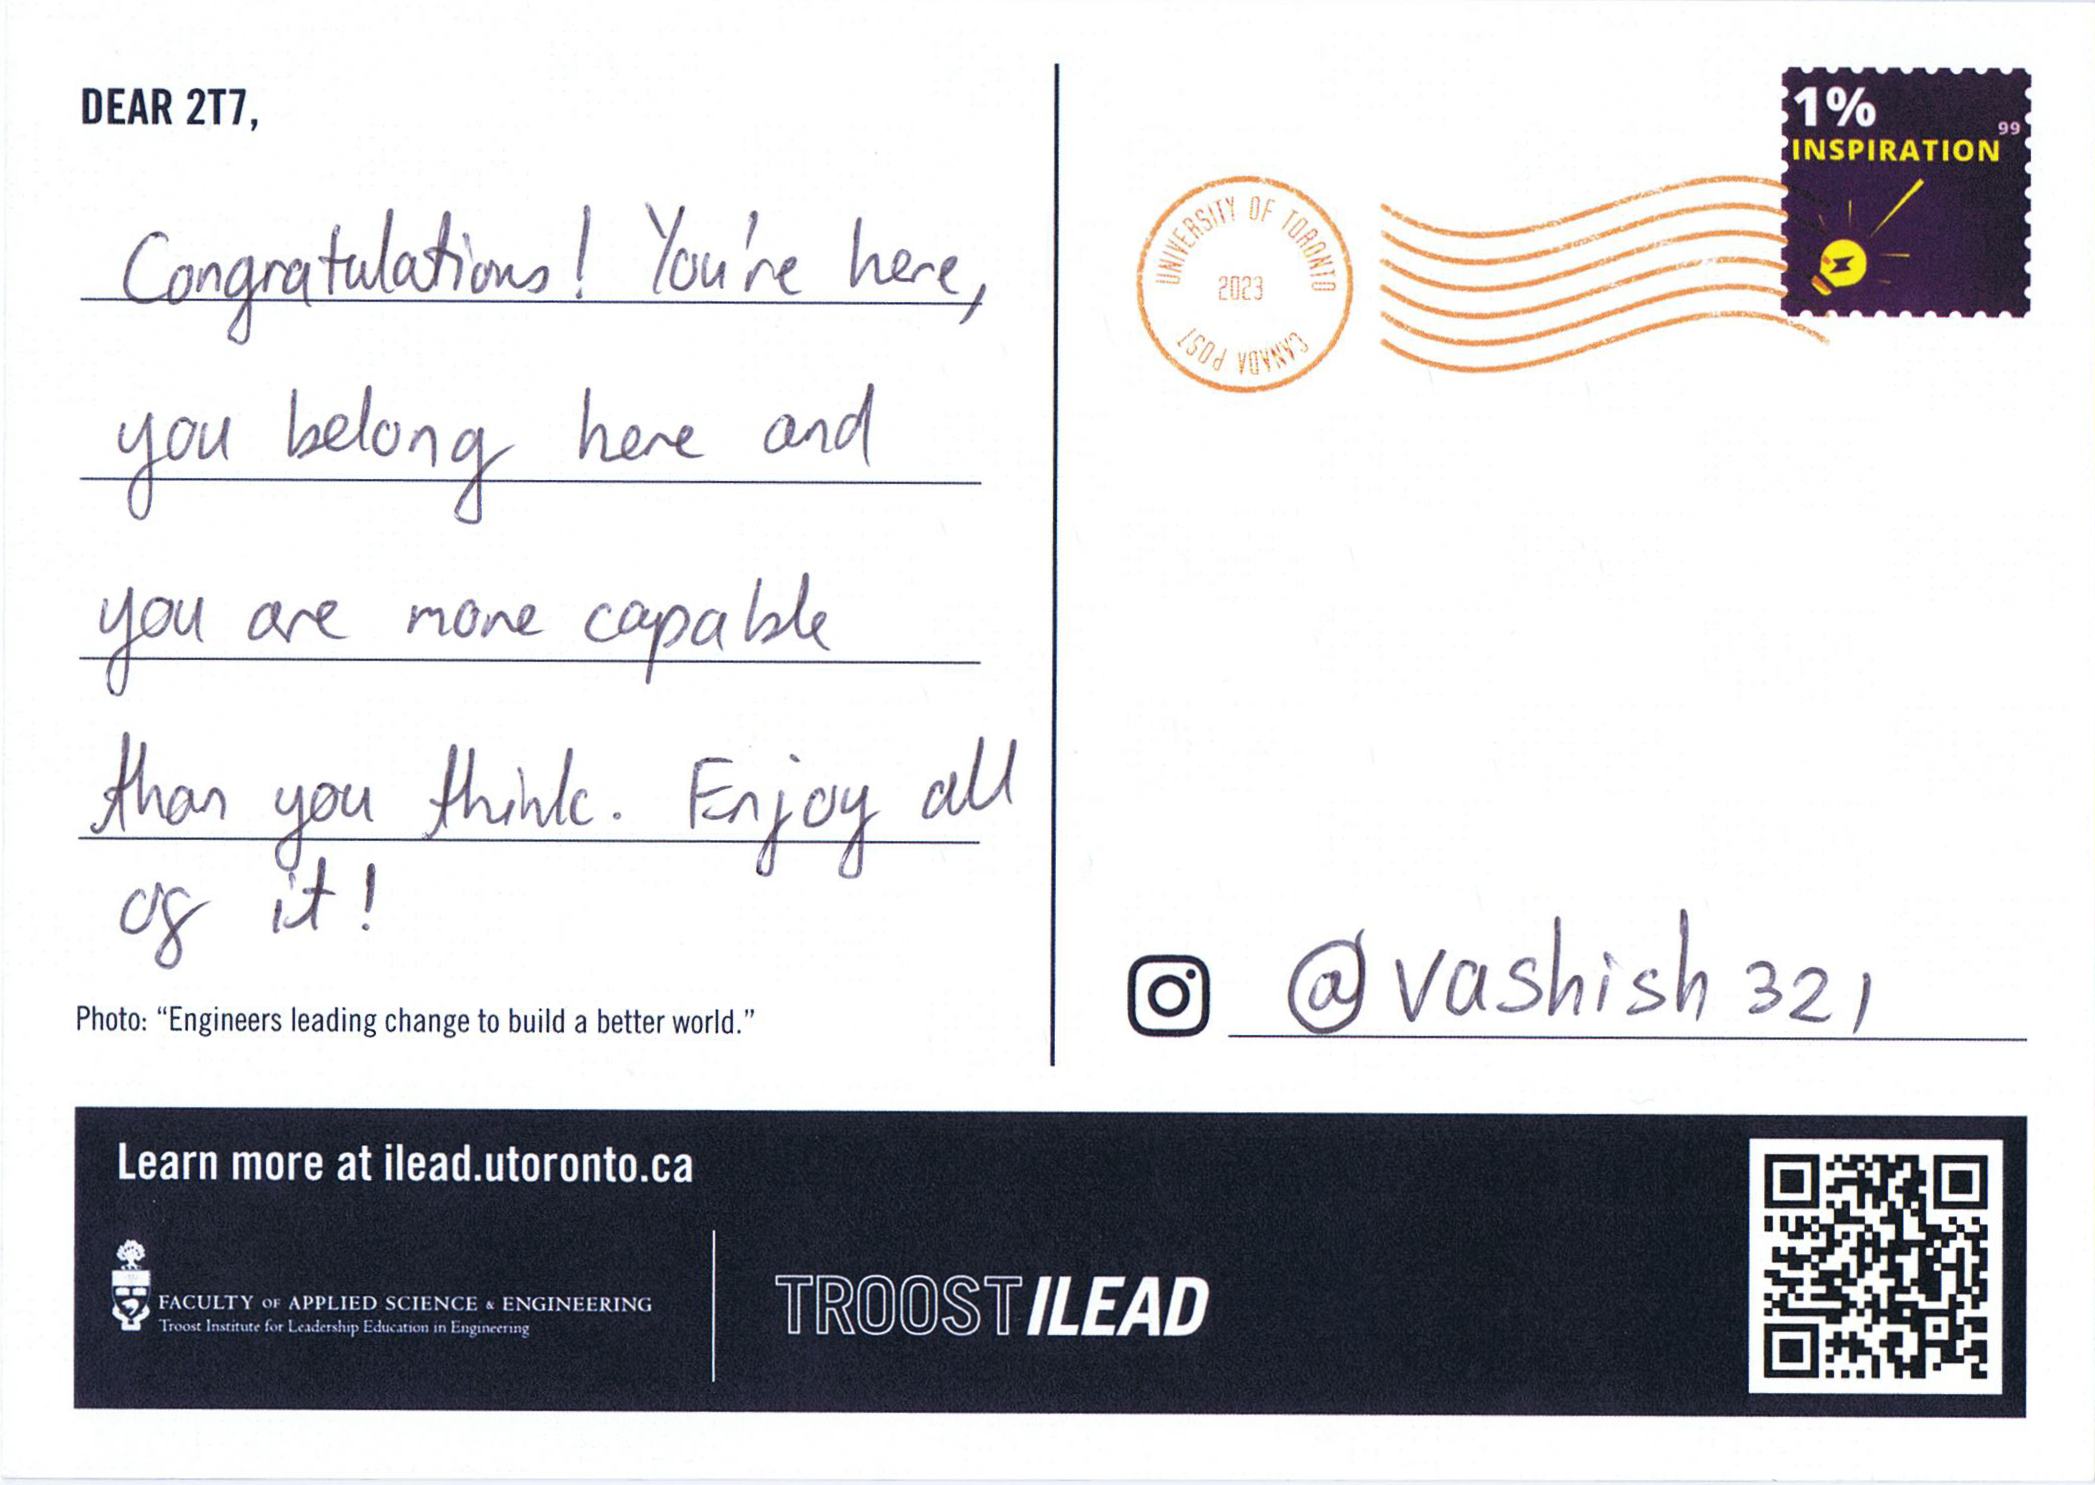 DEAR 2T7,
Congratulations! You're here,
you belong here and
you are more capable
than you think. Enjoy all
of it!
Photo: “Engineers leading change to build a better world.”
1%
99
INSPIRATION
UNIVERSITY OF TORONTO
2023
CANADA POST
@vashish321
Learn more at ilead.utoronto.ca
FACULTY OF APPLIED SCIENCE & ENGINEERING
Troost Institute for Leadership Education in Engineering
TROOST ILEAD